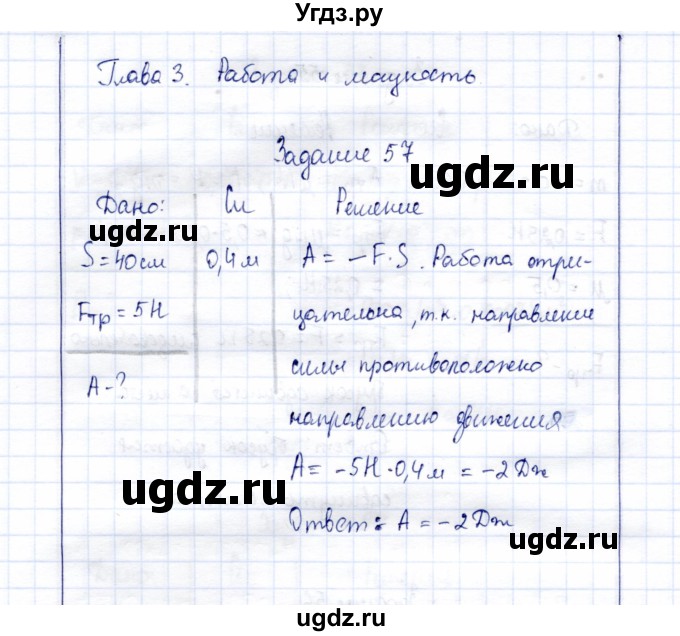 Угдз.ру
Глава 3. Работа и мощность
Задание 57
ugdz.ru
Дано: Си Решение
ugdz.ru
S = 40 см 0,4 м A = -F·S. Работа отри-
Fтр = 5Н цательна, т.к. направление
силы противоположно
A-?
направлению движения
A = -5Н·0,4 м = -2 Дж
ugdz.ru
Ответ: A = -2 Дж
ugdz.ru
ugdz.ru